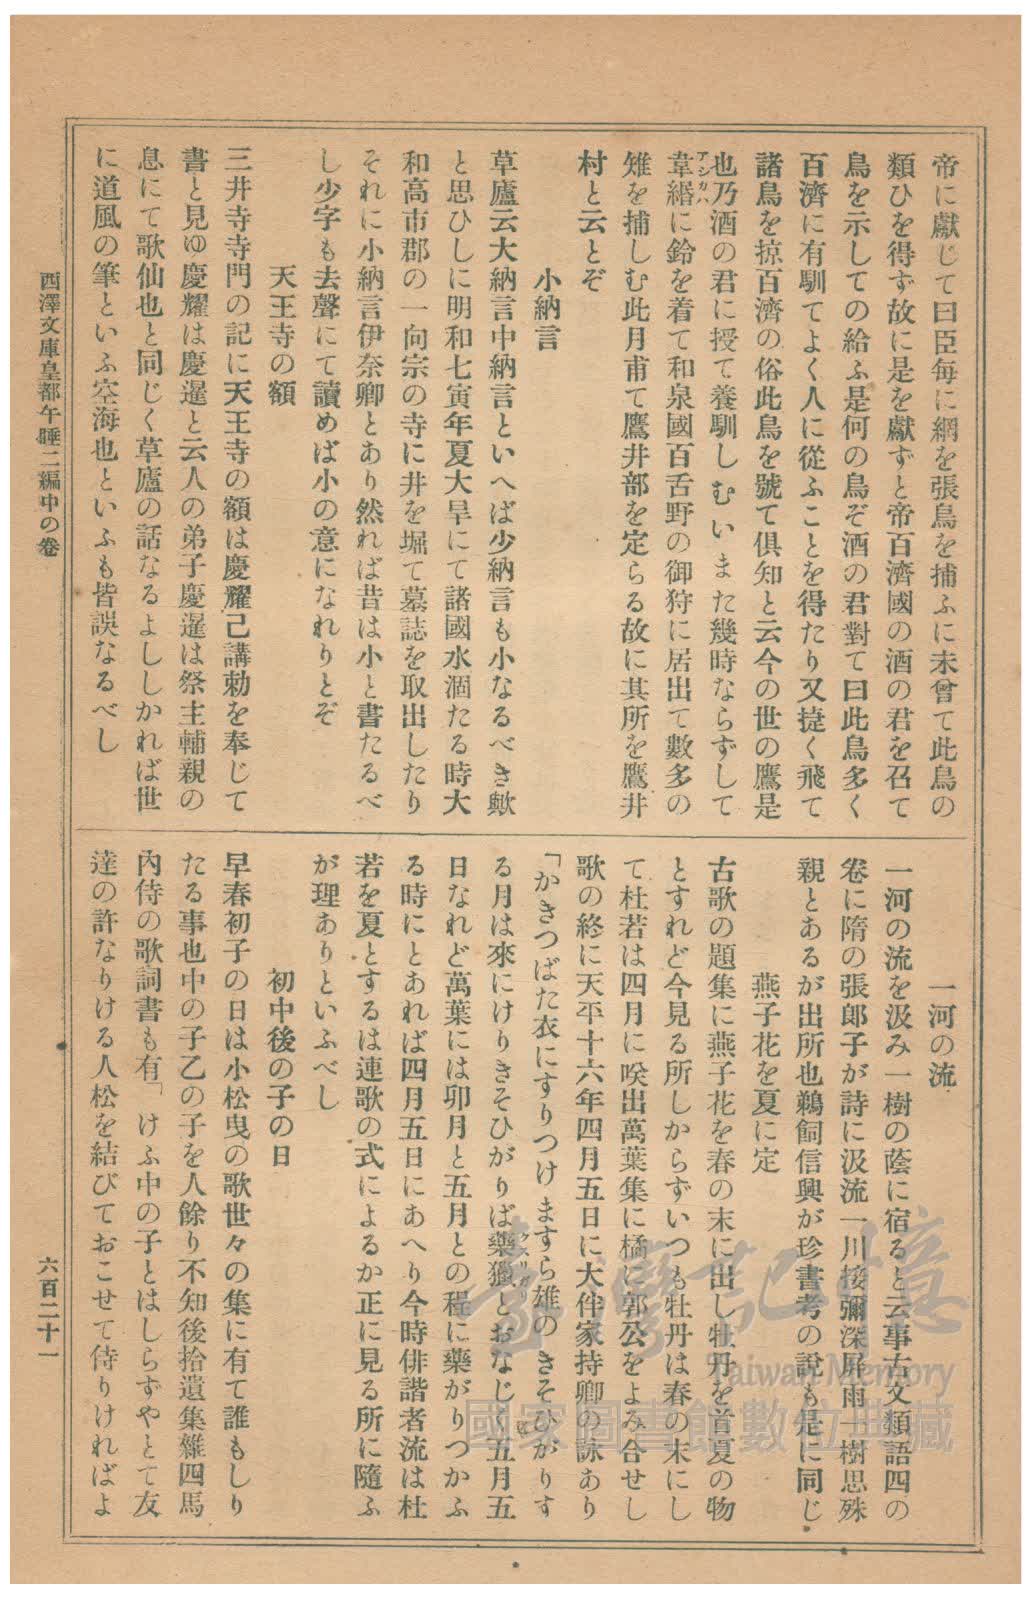 帝に獻じて曰臣每に網を張鳥を捕ふに未曾て此鳥の
類ひを得ず故に是を獻ずと帝百濟國の酒の君を召て
鳥を示しての給ふ是何の鳥ぞ酒の君對て曰此鳥多く
百濟に有馴てよく人に從ふことを得たり又㨗く飛て
諸鳥を掠百濟の俗此鳥を號て俱知と云今の世の鷹是
也乃酒の君に授て養馴しむいまた幾時ならずして
韋緡に鈴を着て和泉國百舌野の御狩に居出て數多の
アシカハ
雉を捕しむ此月甫て鷹井部を定らる故に其所を鷹井
村と云とぞ
小納言
草廬云大納言中納言といへば少納言も小なるべき歟
と思ひしに明和七寅年夏大旱にて諸國水涸たる時大
和高市郡の一向宗の寺に井を堀て墓誌を取出したり
それに小納言伊奈卿とあり然れば昔は小と書たるべ
し少字も去聲にて讀めば小の意になれりとぞ
天王寺の額
三井寺寺門の記に天王寺の額は慶耀己講勅を奉じて
書と見ゆ慶耀は慶暹と云人の弟子慶暹は祭主輔親の
息にて歌仙也と同じく草廬の話なるよししかれば世
に道風の筆といふ空海也といふも皆誤なるべし
一河の流
一河の流を汲み一樹の蔭に宿ると云事古文類語四の
卷に隋の張郎子が詩に汲流一川接彌深屏雨一樹思殊
親とあるが出所也鵜飼信興が珍書考の說も是に同じ
燕子花を夏に定
古歌の題集に燕子花を春の末に出し牡丹を首夏の物
とすれど今見る所しからずいつも牡丹は春の末にし
て杜若は四月に咲出萬葉集に橘に郭公をよみ合せし
歌の終に天平十六年四月五日に大伴家持卿の詠あり
「かきつばた衣にすりつけますら雄のきそひがりす
る月は來にけりきそひがりば藥獵とおなじく五月五
クスリガリ
日なれど萬葉には卯月と五月との程に藥がりつかふ
る時にとあれば四月五日にあへり今時俳諧者流は杜
若を夏とするは連歌の式によるか正に見る所に隨ふ
が理ありといふべし
初中後の子の日
早春初子の日は小松曳の歌世々の集に有て誰もしり
たる事也中の子乙の子を人餘り不知後拾遺集雜四馬
內侍の歌詞書も有「けふ中の子とはしらずやとて友
達の許なりける人松を結びておこせて侍りければよ
西澤文庫皇都午睡二編中の卷
六百二十一
臺灣記憶
Taiwan Memory
國家圖書館數位典藏